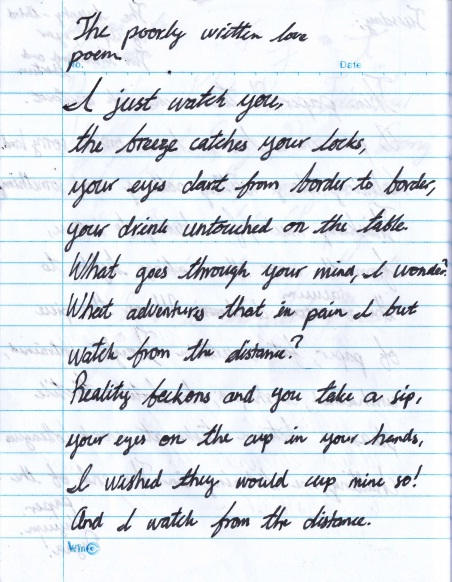 The poorly written love
poem.
No.
Date
I just watch you,
the breeze catches your locks,
your eyes dart from border to border,
your drink untouched on the table.
What goes through your mind, I wonder?
What adventures that in pain I but
watch from the distance?
Reality beckons and you take a sip,
your eyes on the cup in your hands,
I wished they would cup mine so!
And I watch from the distance.